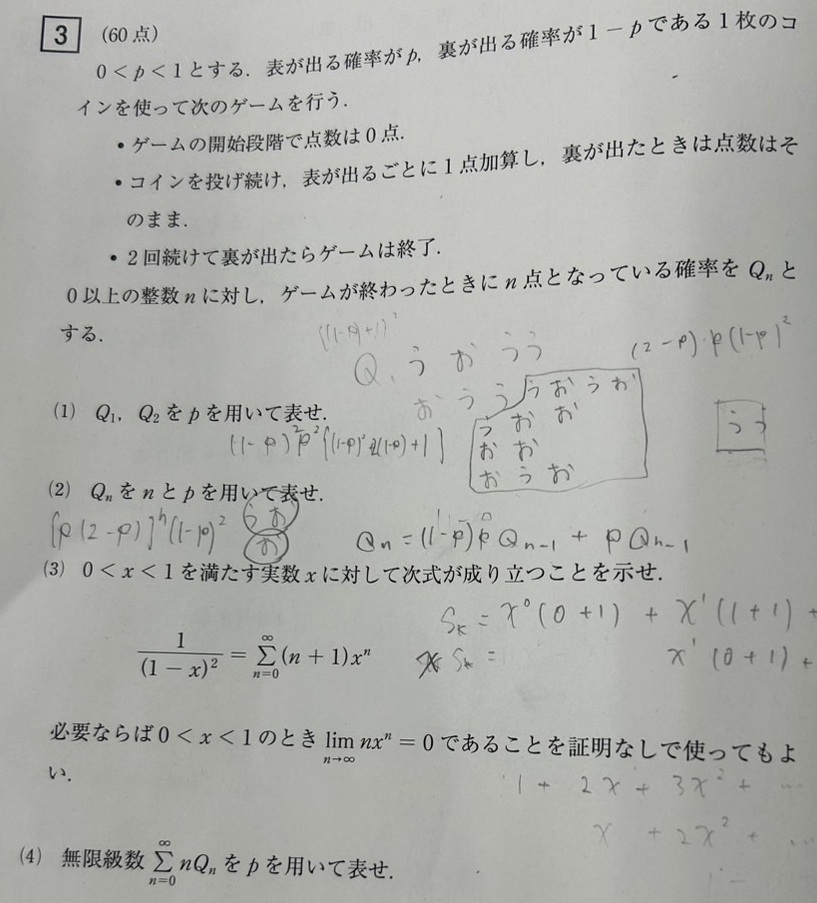 3 (60点)
0<p<1とする．表が出る確率がp，裏が出る確率が1−pである1枚のコ
インを使って次のゲームを行う．
• ゲームの開始段階で点数は0点．
• コインを投げ続け，表が出るごとに1点加算し，裏が出たときは点数はそ
のまま．
• 2回続けて裏が出たらゲームは終了．
0以上の整数nに対し，ゲームが終わったときにn点となっている確率をQₙと
する．
((1-p)+1)²
Q₁ う お うう (2-p)・p(1-p)²
お う う う お う お
(1) Q₁，Q₂をpを用いて表せ．
う お お うう
(1-p)²p²{(1-p)²+2(1-p)+1}
お お
お う お
(2) Qₙをnとpを用いて表せ．
うお
[p(2-p)]ⁿ(1-p)² お Qₙ=(1-p)p Qₙ₋₁ + p Qₙ₋₁
(3) 0<x<1を満たす実数xに対して次式が成り立つことを示せ．
Sₖ = x⁰(0+1) + x¹(1+1) +
1/(1−x)² = Σ[n=0→∞](n+1)xⁿ
x Sₖ = x¹(0+1) +
必要ならば0<x<1のとき lim[n→∞] nxⁿ=0であることを証明なしで使ってもよ
い．
1 + 2x + 3x² + …
x + 2x² + …
(4) 無限級数 Σ[n=0→∞] nQₙをpを用いて表せ．